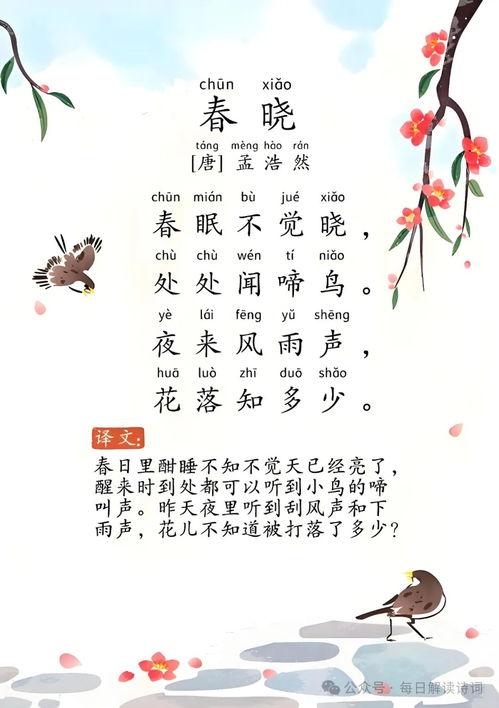 chūn xiǎo
春晓
táng mèng hào rán
[唐] 孟浩然
chūn mián bù jué xiǎo
春眠不觉晓，
chù chù wén tí niǎo
处处闻啼鸟。
yè lái fēng yǔ shēng
夜来风雨声，
huā luò zhī duō shǎo
花落知多少。
译文：
春日里酣睡不知不觉天已经亮了，
醒来时到处都可以听到小鸟的啼
叫声。昨天夜里听到刮风声和下
雨声，花儿不知道被打落了多少？
公众号·每日解读诗词